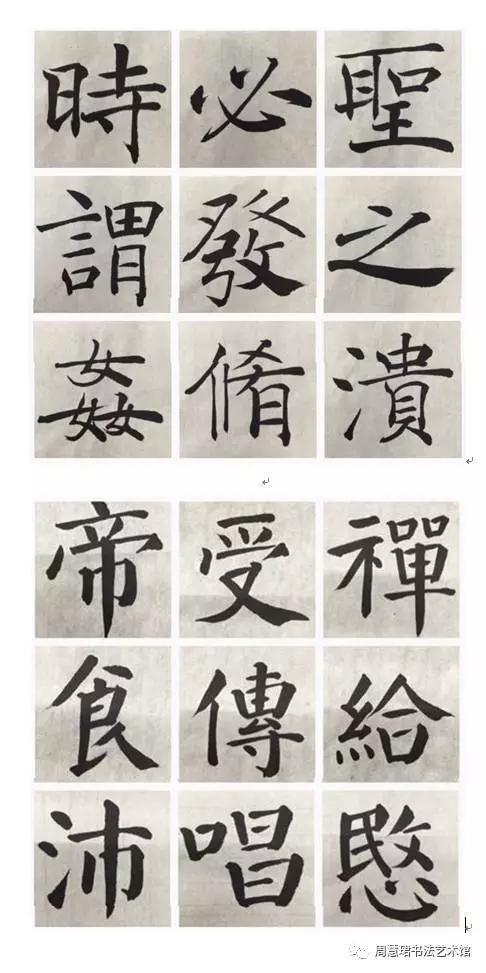 時 必 聖
謂 發 之
姦 脩 潰
帝 受 禪
食 傳 給
沛 唱 愍
周慧珺书法艺术馆